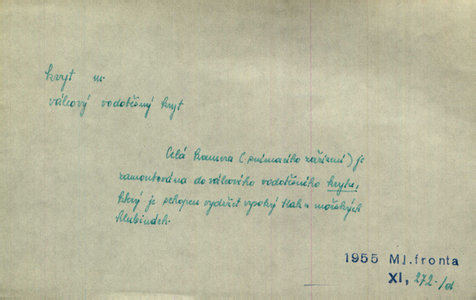 kryt m.
válcový vodotěsný kryt
Celá kamera (snímacího zařízení) je
zamontována do válcového vodotěsného krytu,
který je schopen vydržet vysoký tlak v mořských
hlubinách.
1955 Ml.fronta
XI, 272